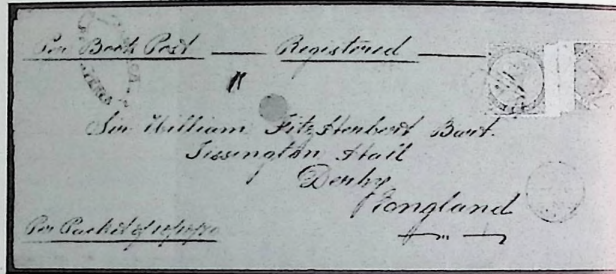 Per Book Post — Registered —
Sir William FitzHerbert Bart.
Tissington Hall
Derby
England
Per Packet of